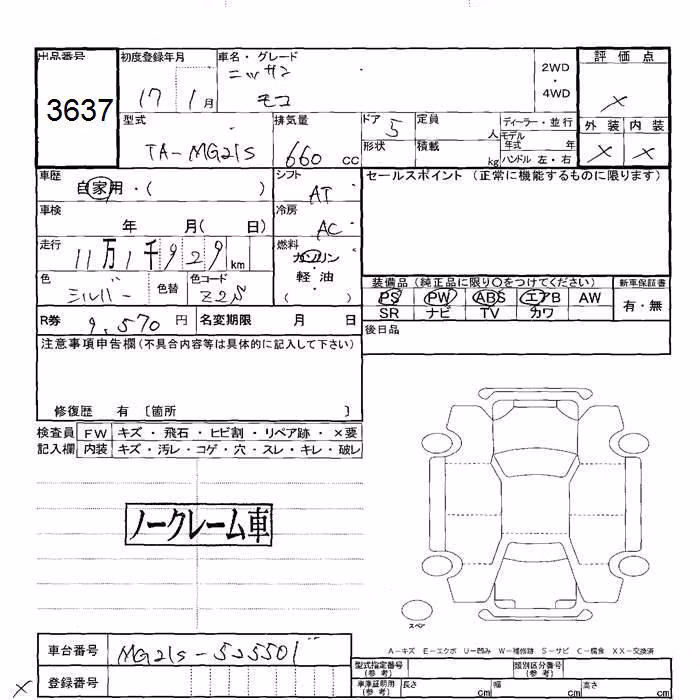 出品番号 初度登録年月 車名・グレード 評価点
3637 17 1月 ニッサン モコ 2WD・4WD ×
型式 排気量 ドア 定員 ディーラー・並行 外装 内装
TA-MG21S 660cc 5 人 モデル年式 年 × ×
形状 積載 kg ハンドル 左・右
車歴 シフト セールスポイント (正常に機能するものに限ります)
自家用・( ) AT
車検 冷房
年 月( 日) AC
走行 燃料
11万1千929km ガソリン
色 色替 色コード 軽・油
シルバー Z2S ( )
装備品(純正品に限り○をつけてください) 新車保証書
PS PW ABS エアB AW 有・無
SR ナビ TV カワ
R券 9,570円 名変期限 月 日
後日品
注意事項申告欄(不具合内容等は具体的に記入して下さい)
修復歴 有 〔箇所 〕
検査員 FW キズ・飛石・ヒビ割・リペア跡・×要
記入欄 内装 キズ・汚レ・コゲ・穴・スレ・キレ・破レ
ノークレーム車
スペア
A-キズ E-エクボ U-凹み W-補修跡 S-サビ C-腐食 XX-交換済
車台番号 MG21S-525501
型式指定番号(参考) 類別区分番号(参考)
× 登録番号
車庫証明用(参考) 長さ cm 幅 cm 高さ cm